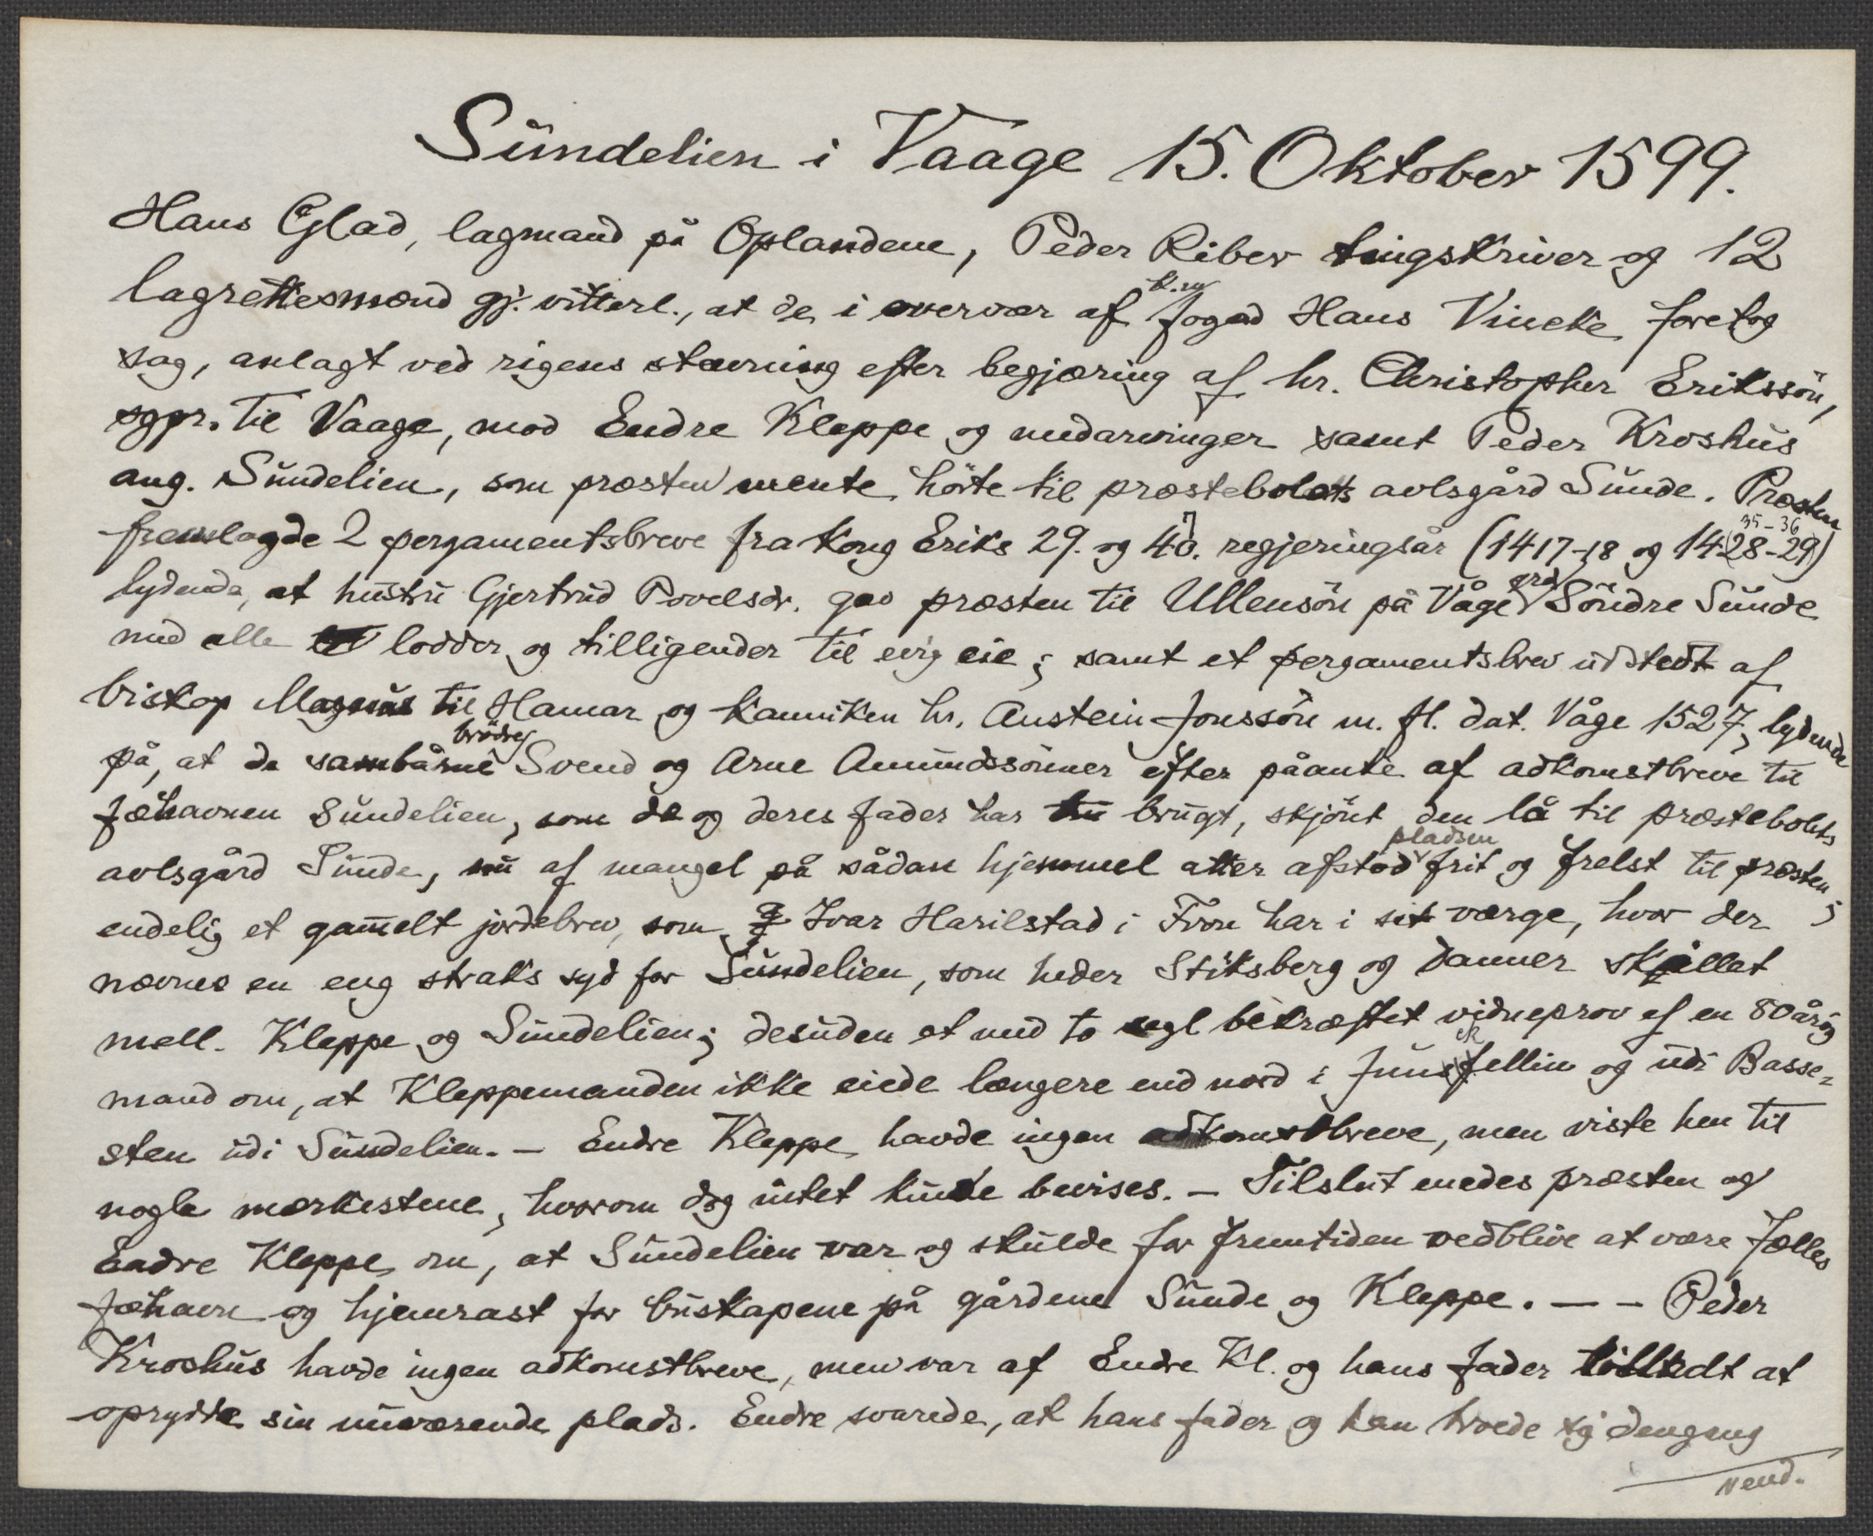 Sundelien i Vaage 15. Oktober 1599.
Hans Glad, lagmand på Oplandene, Peder Riber tingskriver og 12
lagrettesmænd gj. vitterl., at de i overvær af fogd Hans Vincke foretog
sag, anlagt ved rigens stævning efter begjæring af hr. Christopher Erikssön,
sgpr. til Vaage, mod Endre Kleppe og medarvinger samt Peder Kroshus
ang. Sundelien, som præsten mente hörte til præstebolets avlsgård Sunde. Præsten
fremlagde 2 pergamentsbreve fra kong Eriks 29. og 47. regjeringsår (1417-18 og 1435-36)
lydende, at hustru Gjertrud Povelsdr. gav præsten til Ullensön på Våge grd Söndre Sunde
med alle lodder og tilligender til evig eie; samt et pergamentsbrev udstedt af
biskop Magnus til Hamar og kanniken hr. Austein Jonssön m. fl. dat. Våge 1527, lydende
på, at de sambårne brödre Svend og Arne Amundssönner efter påanke af adkomstbreve til
fæhavnen Sundelien, som de og deres fader har brugt, skjönt den lå til præstebolets
avlsgård Sunde, nu af mangel på sådan hjemmel atter afstod pladsen frit og frelst til præsten;
endelig et gammelt jordebrev, som Ivar Harilstad i Fron har i sit værge, hvor der
nævnes en eng straks syd for Sundelien, som heder Stiksberg og danner skjellet
mell. Kleppe og Sundelien; desuden et med to segl bekræftet vidneprov af en 80årig
mand om, at Kleppemanden ikke eiede længere end nord i fellin og udi Basse-
sten udi Sundelien. - Endre Kleppe havde ingen adkomstbreve, men viste hen til
nogle merkestene, hvorom dog intet kunde bevises. - Tilslut enedes præsten og
Endre Kleppe om, at Sundelien var og skulde for fremtiden vedblive at være fælles
fæhavn og hjemrast for buskapene på gårdene Sunde og Kleppe. - - Peder
Kroshus havde ingen adkomstbreve, men var af Endre Kl. og hans fader tilledt at
oprydde sin nuværende plads. Endre svarede, at hans fader og han troede sig dengang
vend.